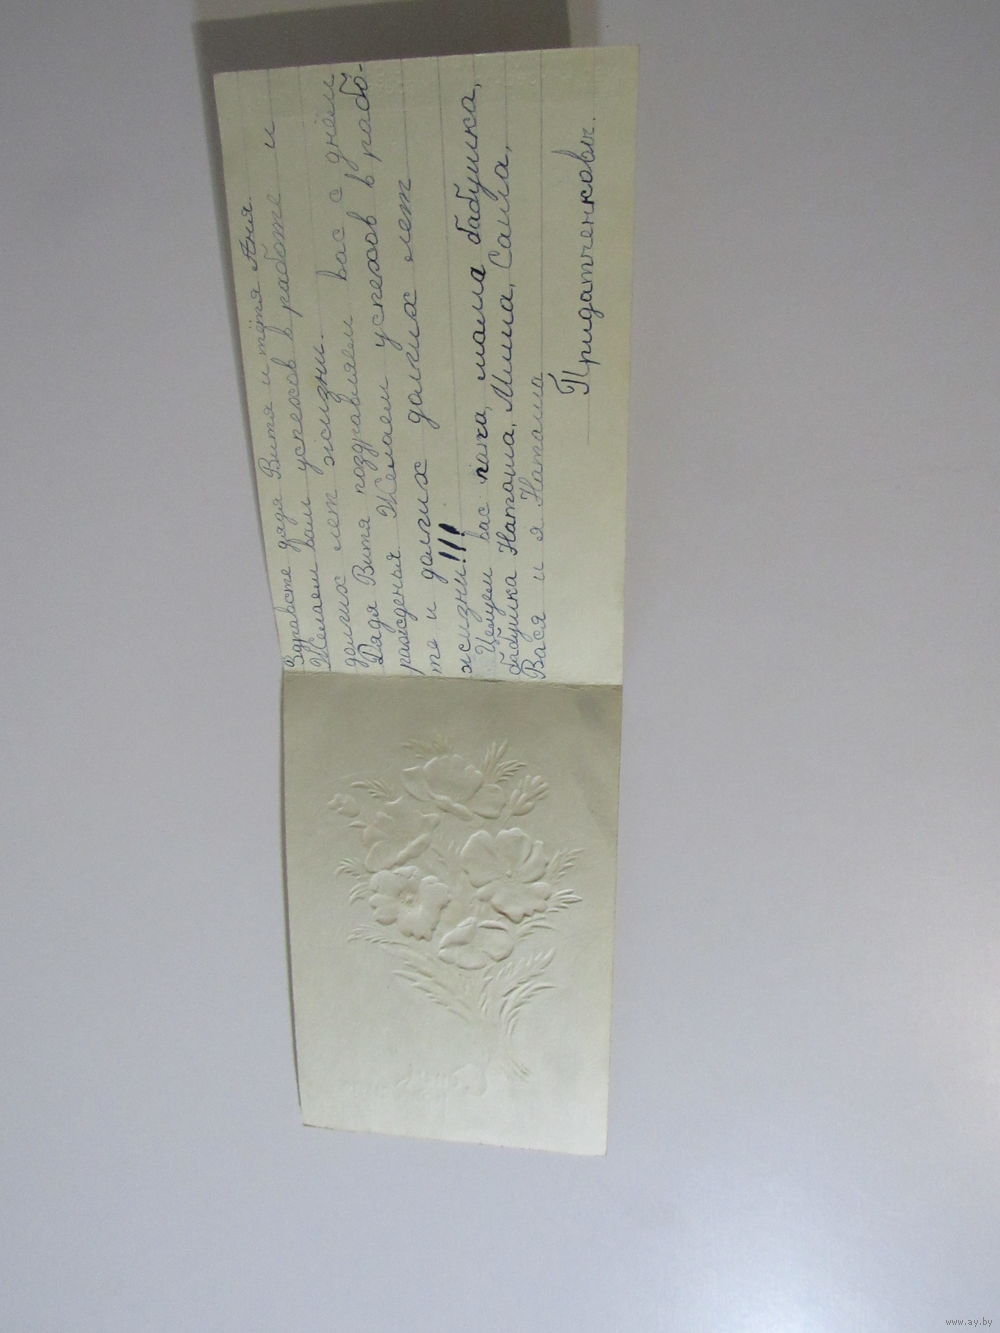 Здравсте дядя Витя и тётя Аня.
Желаем вам успехов в работе и
долгих лет жизни.
Дядя Витя поздравляем вас с днём
рожденья Желаем успехов в рабо-
те и долгих долгих лет
жизни!!!
Целуем вас папа, мама бабушка,
бабушка Наташа, Миша, Саша,
Вася и я Наташа
Придатченковы.
www.ay.by